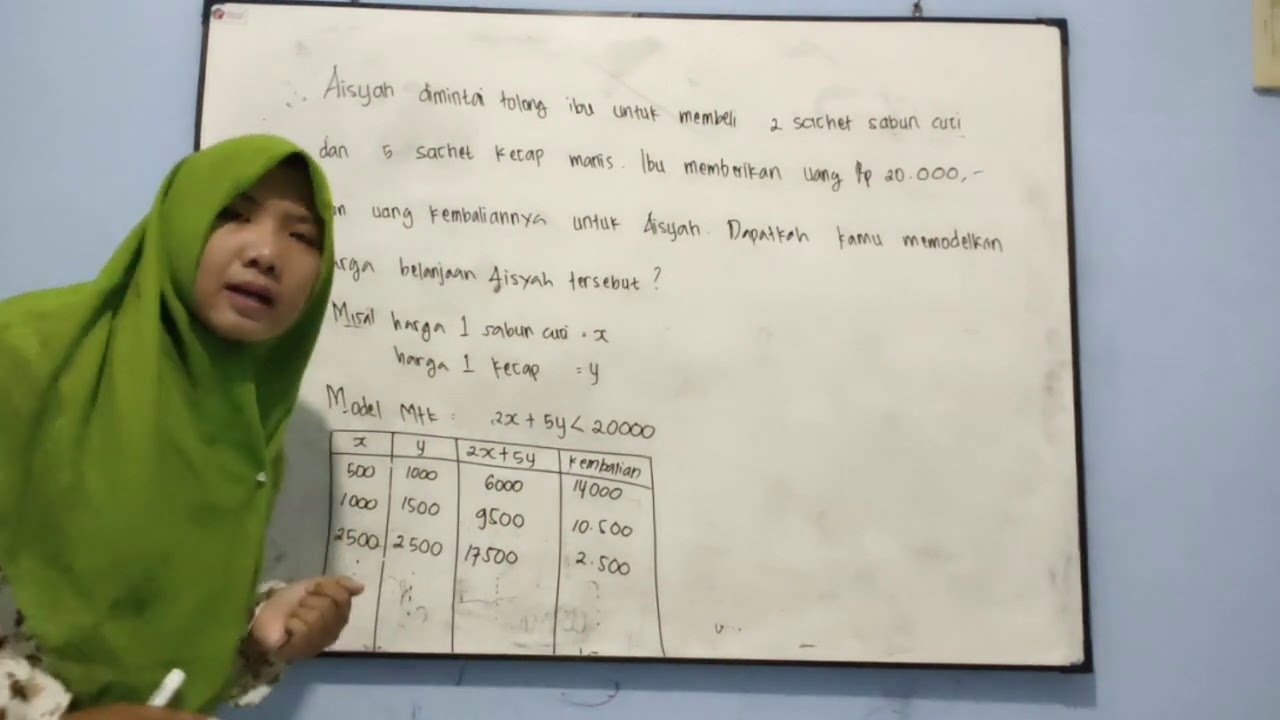 Aisyah dimintai tolong ibu untuk membeli 2 sachet sabun cuci
dan 5 sachet kecap manis. Ibu memberikan uang Rp 20.000,-
uang kembaliannya untuk Aisyah. Dapatkah kamu memodelkan
belanjaan Aisyah tersebut?
Misal harga 1 sabun cuci = x
harga 1 kecap = y
Model Mtk : 2x + 5y < 20000
x y 2x+5y kembalian
500 1000 6000 14000
1000 1500 9500 10.500
2500 2500 17500 2.500